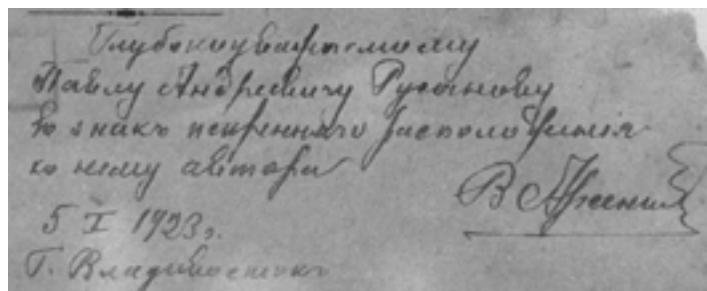 Глубокоуважаемому
Павлу Андреевичу Русанову
въ знакъ искренняго расположенія
къ нему автора
В Арсеньев
5 I 1923г.
Г. Владивостокъ